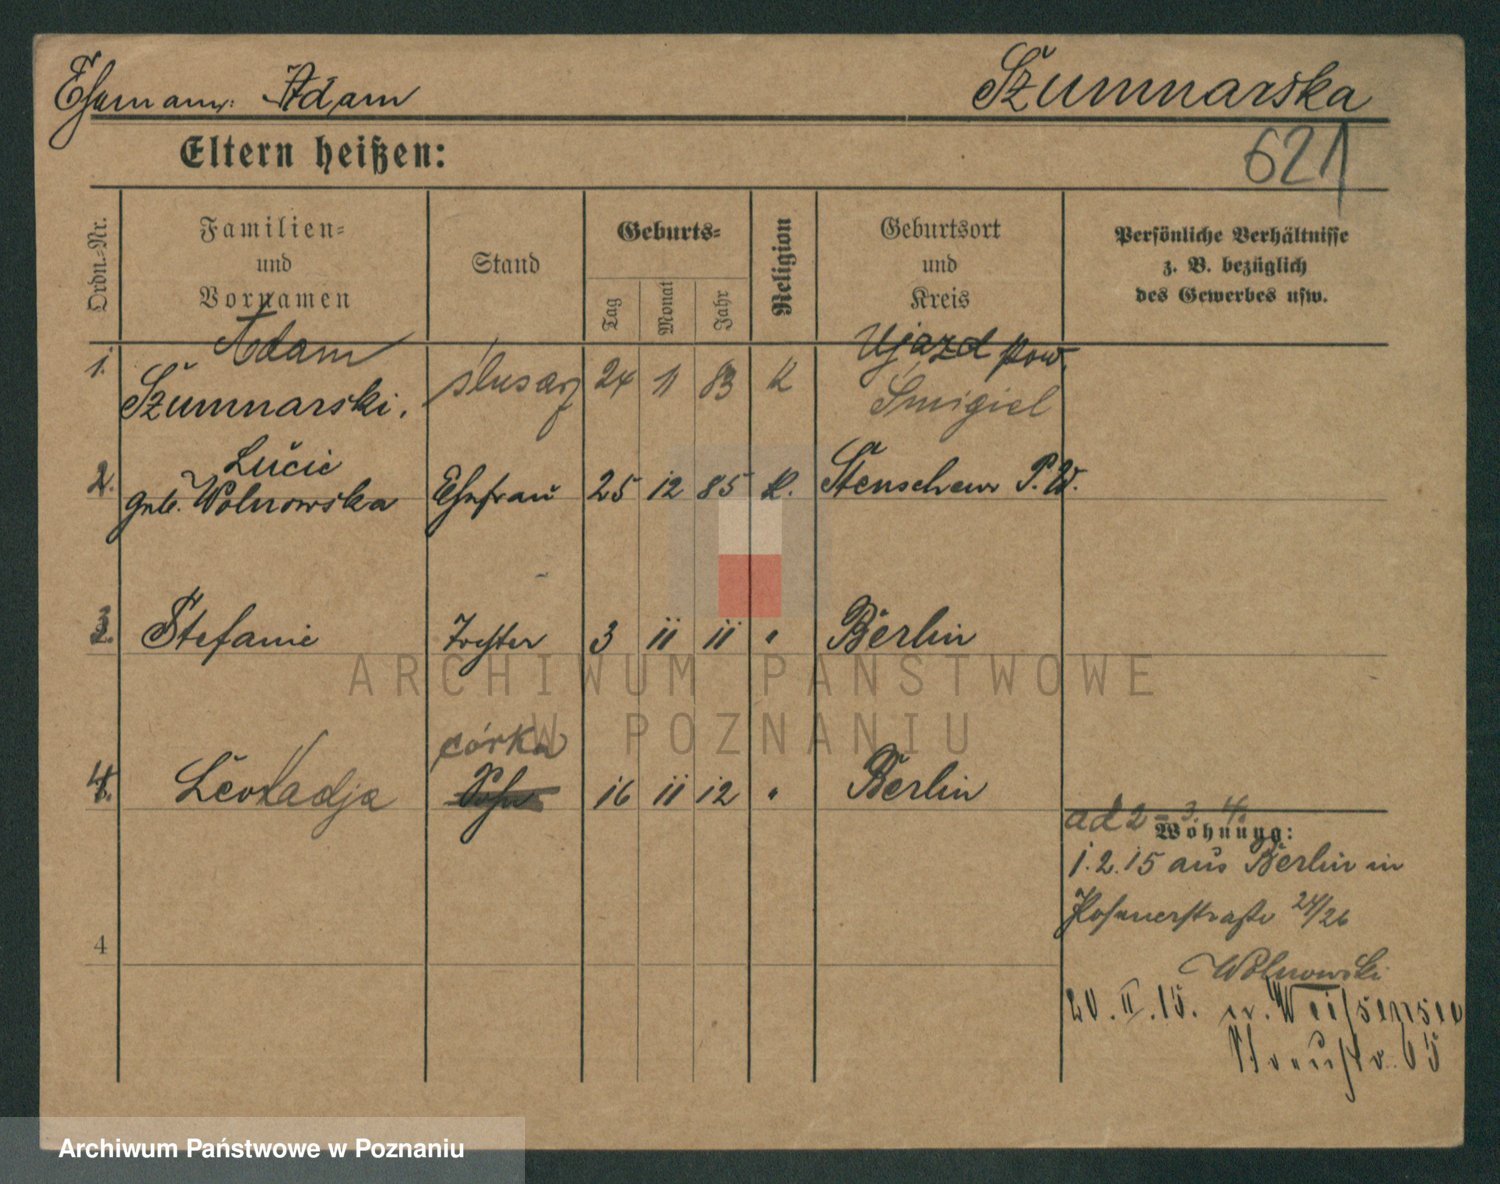 Ehemann: Adam
Szumnarska
Eltern heißen:
621
Ordn.-Nr.
Familien-
und
Vornamen
Stand
Geburts-
Tag
Monat
Jahr
Religion
Geburtsort
und
Kreis
Persönliche Verhältnisse
z. B. bezüglich
des Gewerbes usw.
1. Adam Szumnarski. ślusarz 24 11 83 K Ujazd pow.
Śmigiel
2. Lucie
geb. Wolnowska Ehefrau 25 12 85 K. Stenschewo P. W.
3. Stefanie Tochter 3 11 11 " Berlin
córka
4. Leokadja Sohn 16 11 12 " Berlin
ad 2 - 3. 4.
Wohnung:
1. 2. 15 aus Berlin in
Posenerstraße 24/26
Wolnowski
4
20. II. 15. n. Weißensee
65
ARCHIWUM PAŃSTWOWE
W POZNANIU
Archiwum Państwowe w Poznaniu